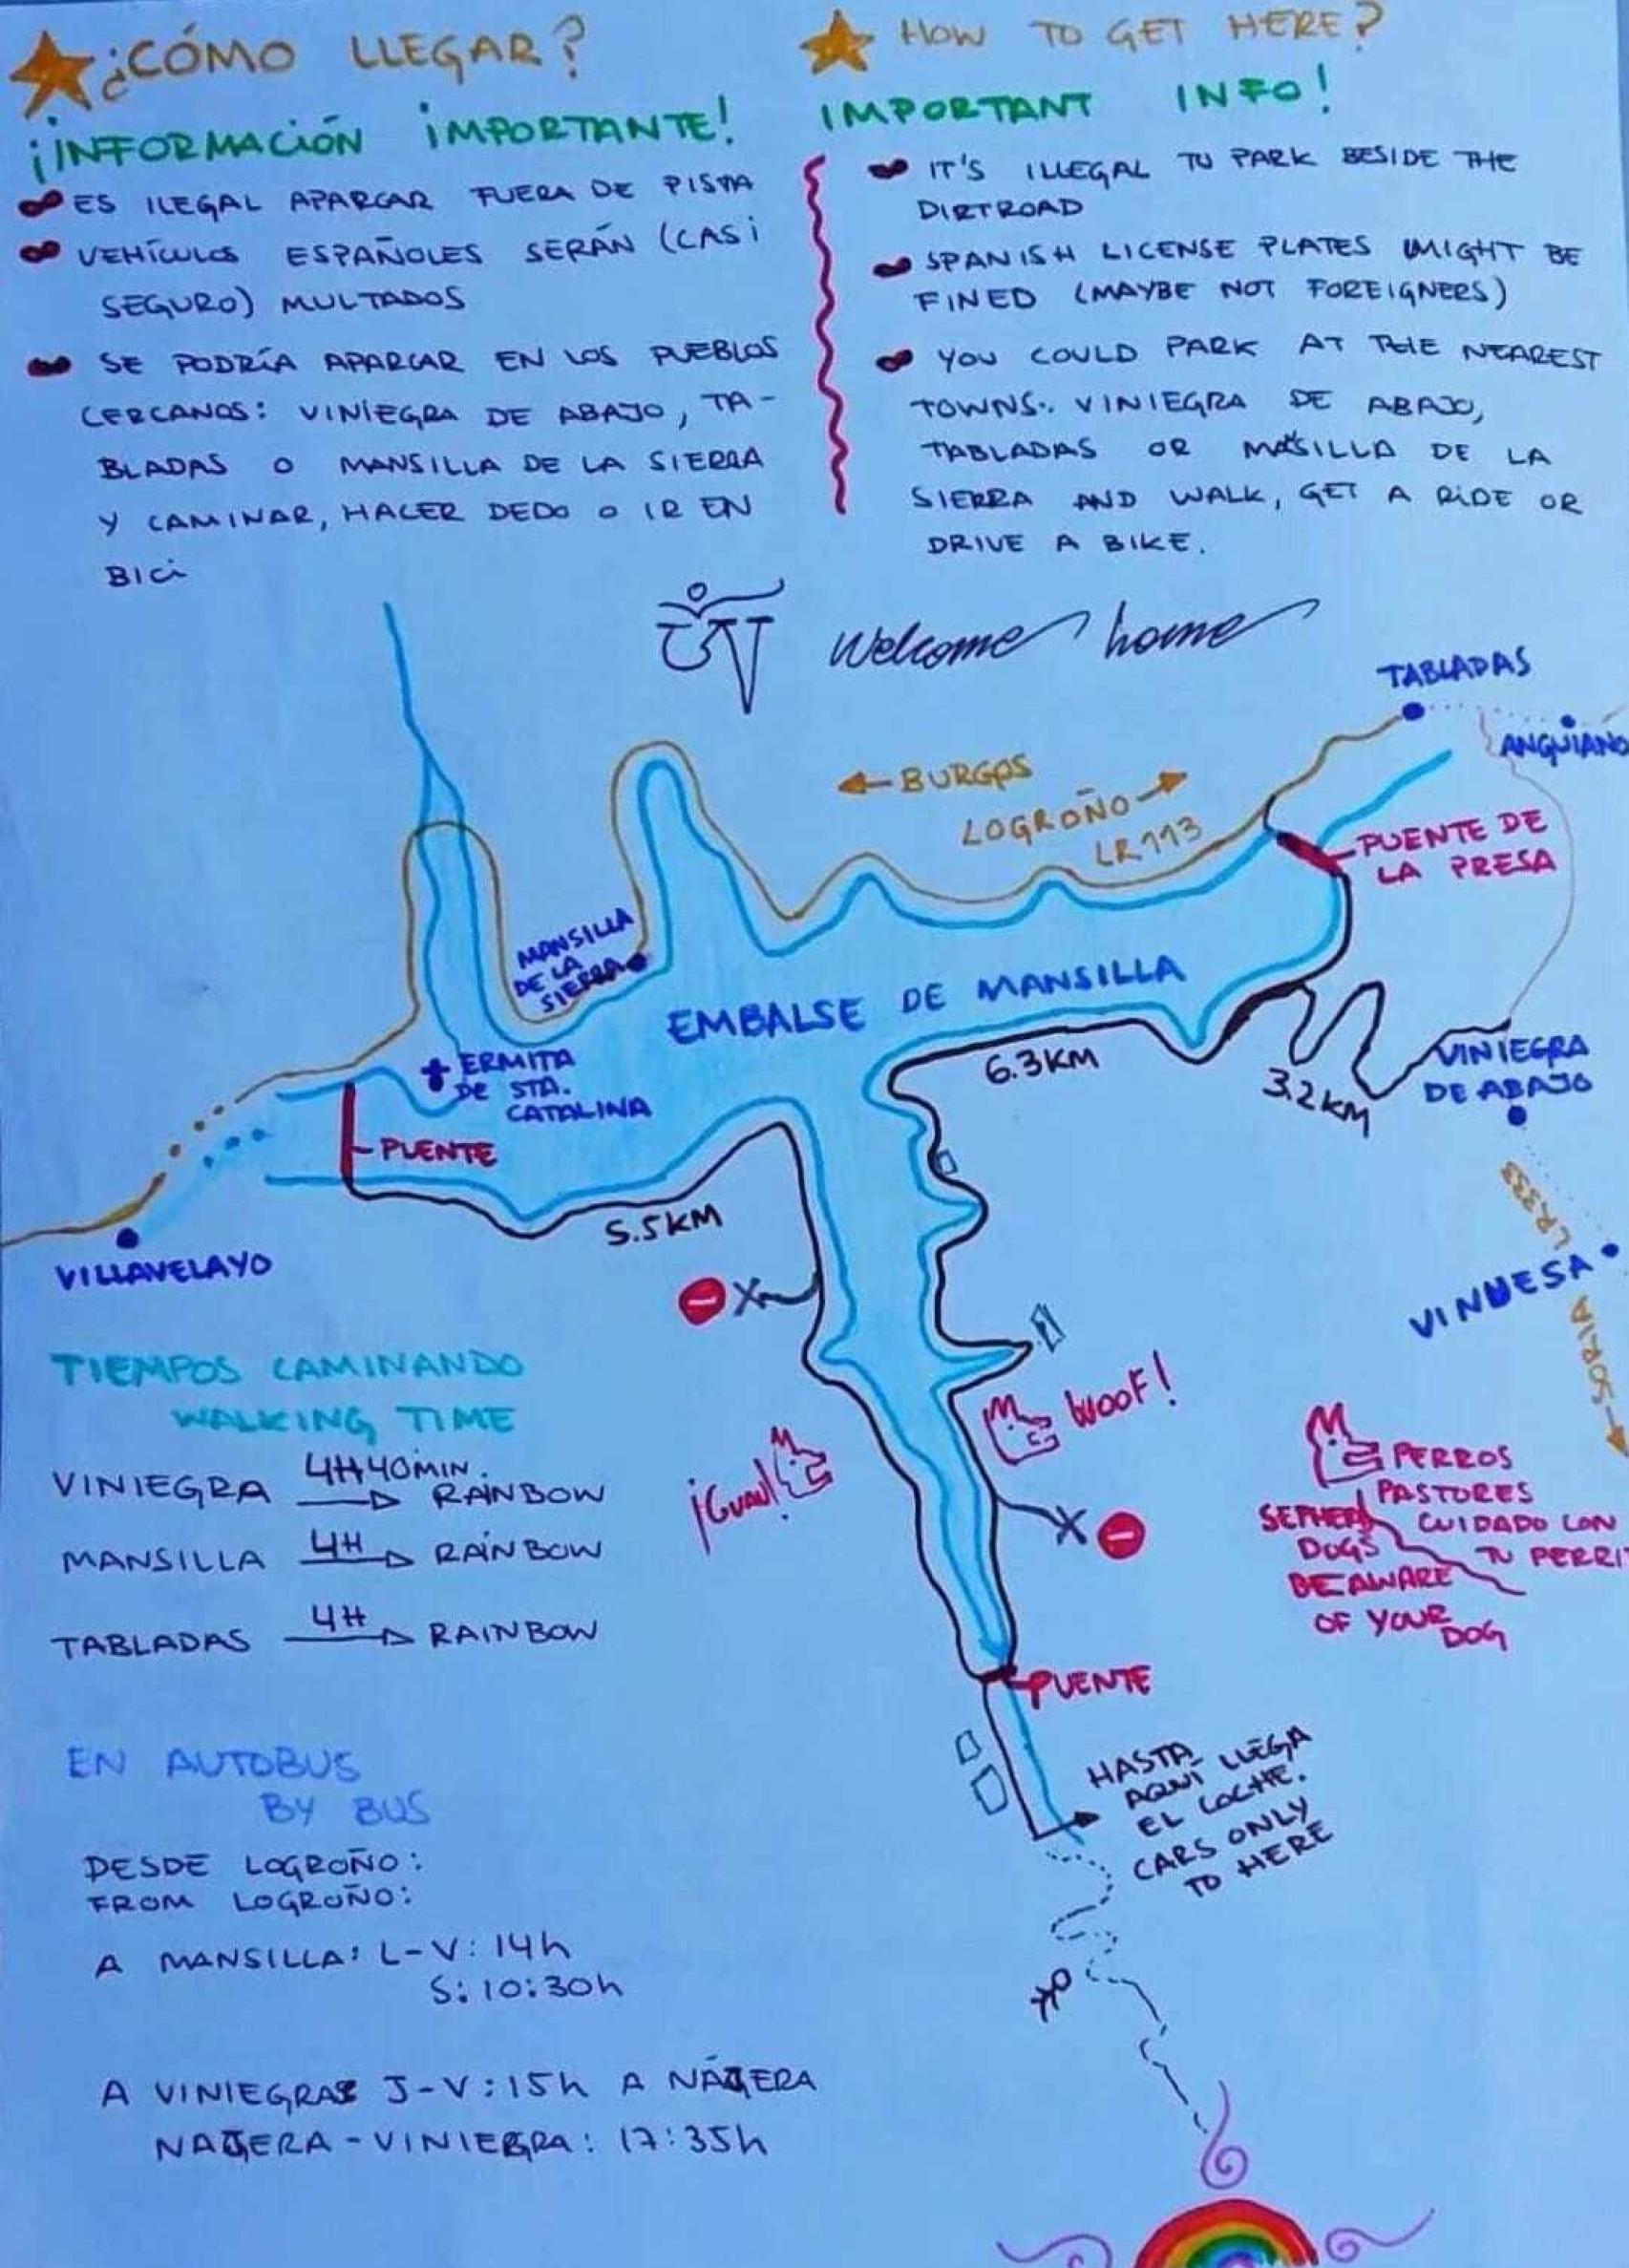 ¿CÓMO LLEGAR?
¡INFORMACIÓN IMPORTANTE!
ES ILEGAL APARCAR FUERA DE PISTA
VEHÍCULOS ESPAÑOLES SERÁN (CASI
SEGURO) MULTADOS
SE PODRÍA APARCAR EN LOS PUEBLOS
CERCANOS: VINIEGRA DE ABAJO, TA-
BLADAS O MANSILLA DE LA SIERRA
Y CAMINAR, HACER DEDO O IR EN
BICI
HOW TO GET HERE?
IMPORTANT INFO!
IT'S ILLEGAL TO PARK BESIDE THE
DIRTROAD
SPANISH LICENSE PLATES MIGHT BE
FINED (MAYBE NOT FOREIGNERS)
YOU COULD PARK AT THE NEAREST
TOWNS: VINIEGRA DE ABAJO,
TABLADAS OR MASILLA DE LA
SIERRA AND WALK, GET A RIDE OR
DRIVE A BIKE.
Welcome home
TABLADAS
ANGUIANO
← BURGOS
LOGROÑO →
LR113
PUENTE DE
LA PRESA
MANSILLA
DE LA
SIERRA
EMBALSE DE MANSILLA
ERMITA
DE STA.
CATALINA
6.3KM
3.2KM
VINIEGRA
DE ABAJO
PUENTE
5.5KM
VILLAVELAYO
LR-333
VINUESA
SORIA
TIEMPOS CAMINANDO
WALKING TIME
VINIEGRA 4H40MIN. RAINBOW
MANSILLA 4H RAINBOW
TABLADAS 4H RAINBOW
WOOF!
¡GUAU!
PERROS
PASTORES
CUIDADO CON
TU PERRIT
SEPHERD
DOGS
BE AWARE
OF YOUR
DOG
PUENTE
HASTA
AQUÍ LLEGA
EL COCHE.
CARS ONLY
TO HERE
EN AUTOBUS
BY BUS
DESDE LOGROÑO:
FROM LOGROÑO:
A MANSILLA: L-V: 14h
S: 10:30h
A VINIEGRA: J-V: 15h A NÁJERA
NAJERA-VINIEGRA: 17:35h